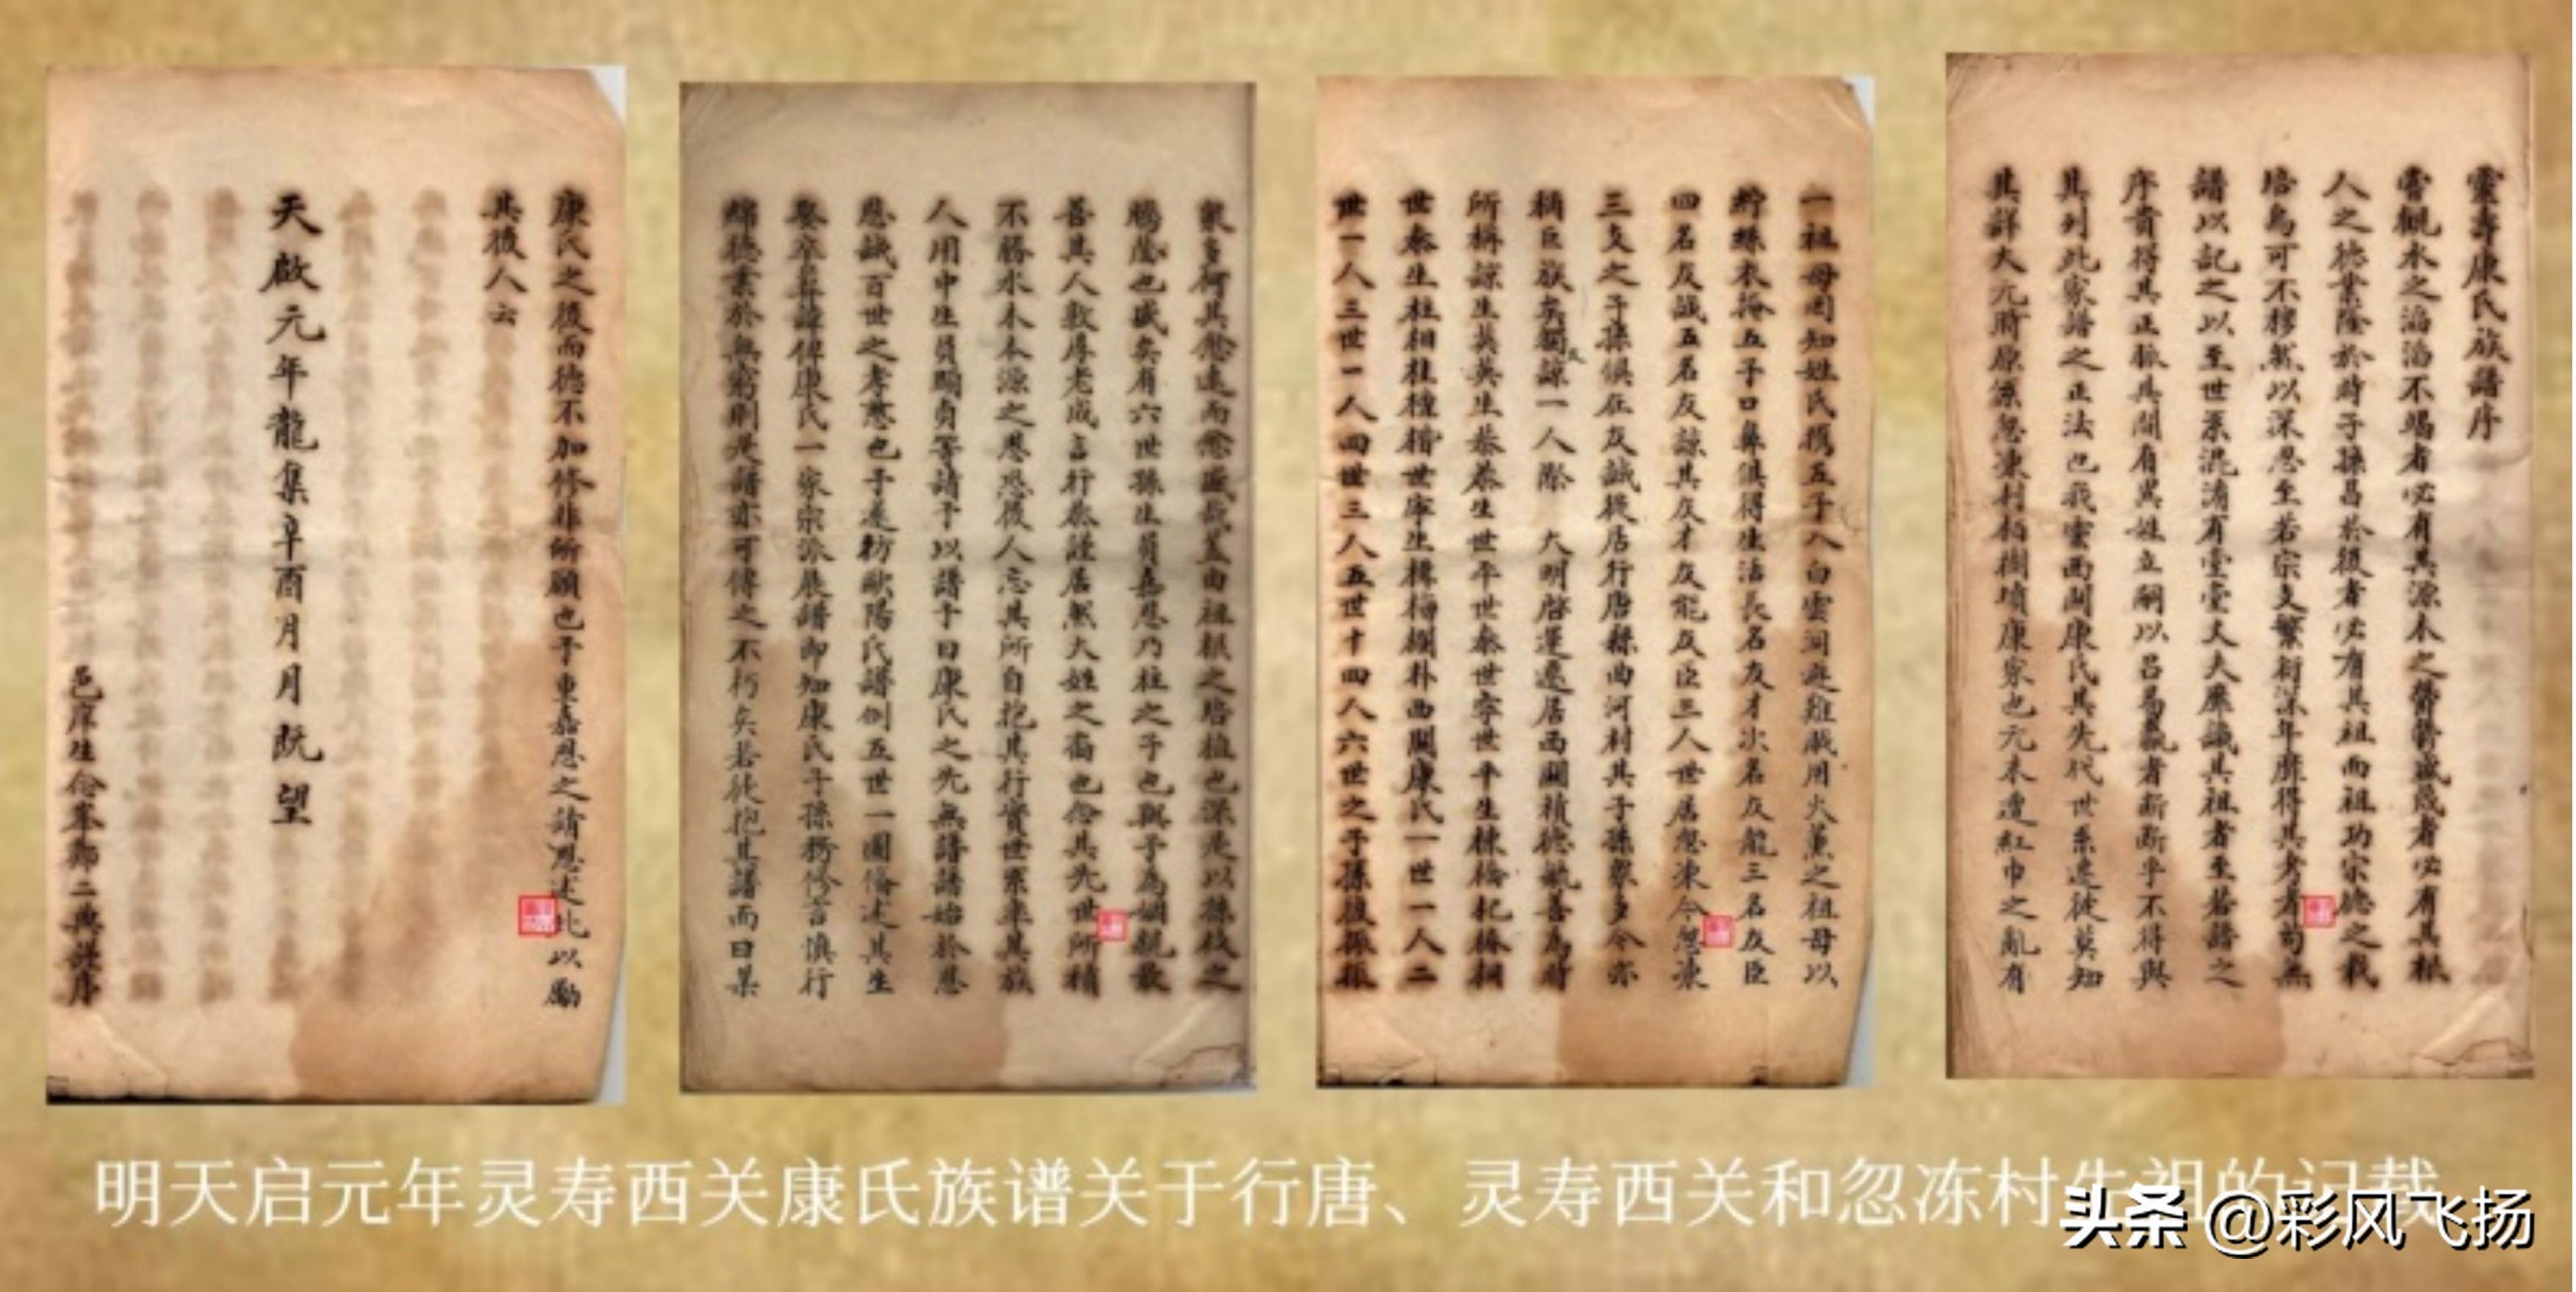 靈壽康氏族譜序
嘗觀水之滔滔不竭者必有其源木之欝欝盛茂者必有其根
人之德業隆於時子孫昌於後者必有其祖而祖功宗德之栽
培烏可不穆然以深思至若宗支繁衍深年靡得其考者苟無
譜以記之以至世系混淆有臺臺大夫靡識其祖者至若譜之
序貴得其正脈其間有異姓立嗣以呂易嬴者斬斷乎不得與
其列此家譜之正法也我靈西關康氏其先代世系遠徙莫知
其詳大元時原係忽凍村柏樹墳康家也元末遭紅巾之亂有
一祖母因知姓氏携五子入白雲洞避難戲用火薰之祖母以
拾五子口鼻俱得生活長名友才次名友能三名友臣
四名友誠五名友諒其友才友能友臣三人世居忽凍今忽凍
三支之子孫俱在友誠後居行唐縣西河村其子孫衆多今亦
稱巨族矣獨友諒一人際 大明啓運遷居西關積德毓善為時
所稱諒生英英生恭恭生世平世泰世寧世平生棟檜杞椿桐
世泰生柱相桂檀楷世寧生樺梅棚朴西關康氏一世一人二
世一人三世一人四世三人五世十四人六世之子孫振振
衆多何其愈遠而愈盛哉蓋由祖根之培植也深是以孫枝之
暢茂也盛矣有六世孫生員嘉恩乃柱之子也與予為姻親最
善其人敦厚老成言行恭謹居然大姓之裔也念其先世所積
不勝水木本源之思恐後人忘其所自抱其行實世系率其族
人用中生員顯貞等請予以譜予曰康氏之先無譜譜始於恩
恩誠百世之孝慈也于是倣歐陽氏譜例五世一圖備述其生
娶卒葬諱俾康氏一家宗派展譜即知康氏子孫務修言慎行
綿德業於無窮則是譜亦可傳之不朽矣若徒抱其譜而曰某
康氏之後而德不加修非所願也予重嘉恩之請思述此以勵
其後人云
天啟元年龍集辛酉月月既望
邑庠生念峯鄭二典謹序
明天启元年灵寿西关康氏族谱关于行唐、灵寿西关和忽冻村先祖的记载
头条 @彩风飞扬